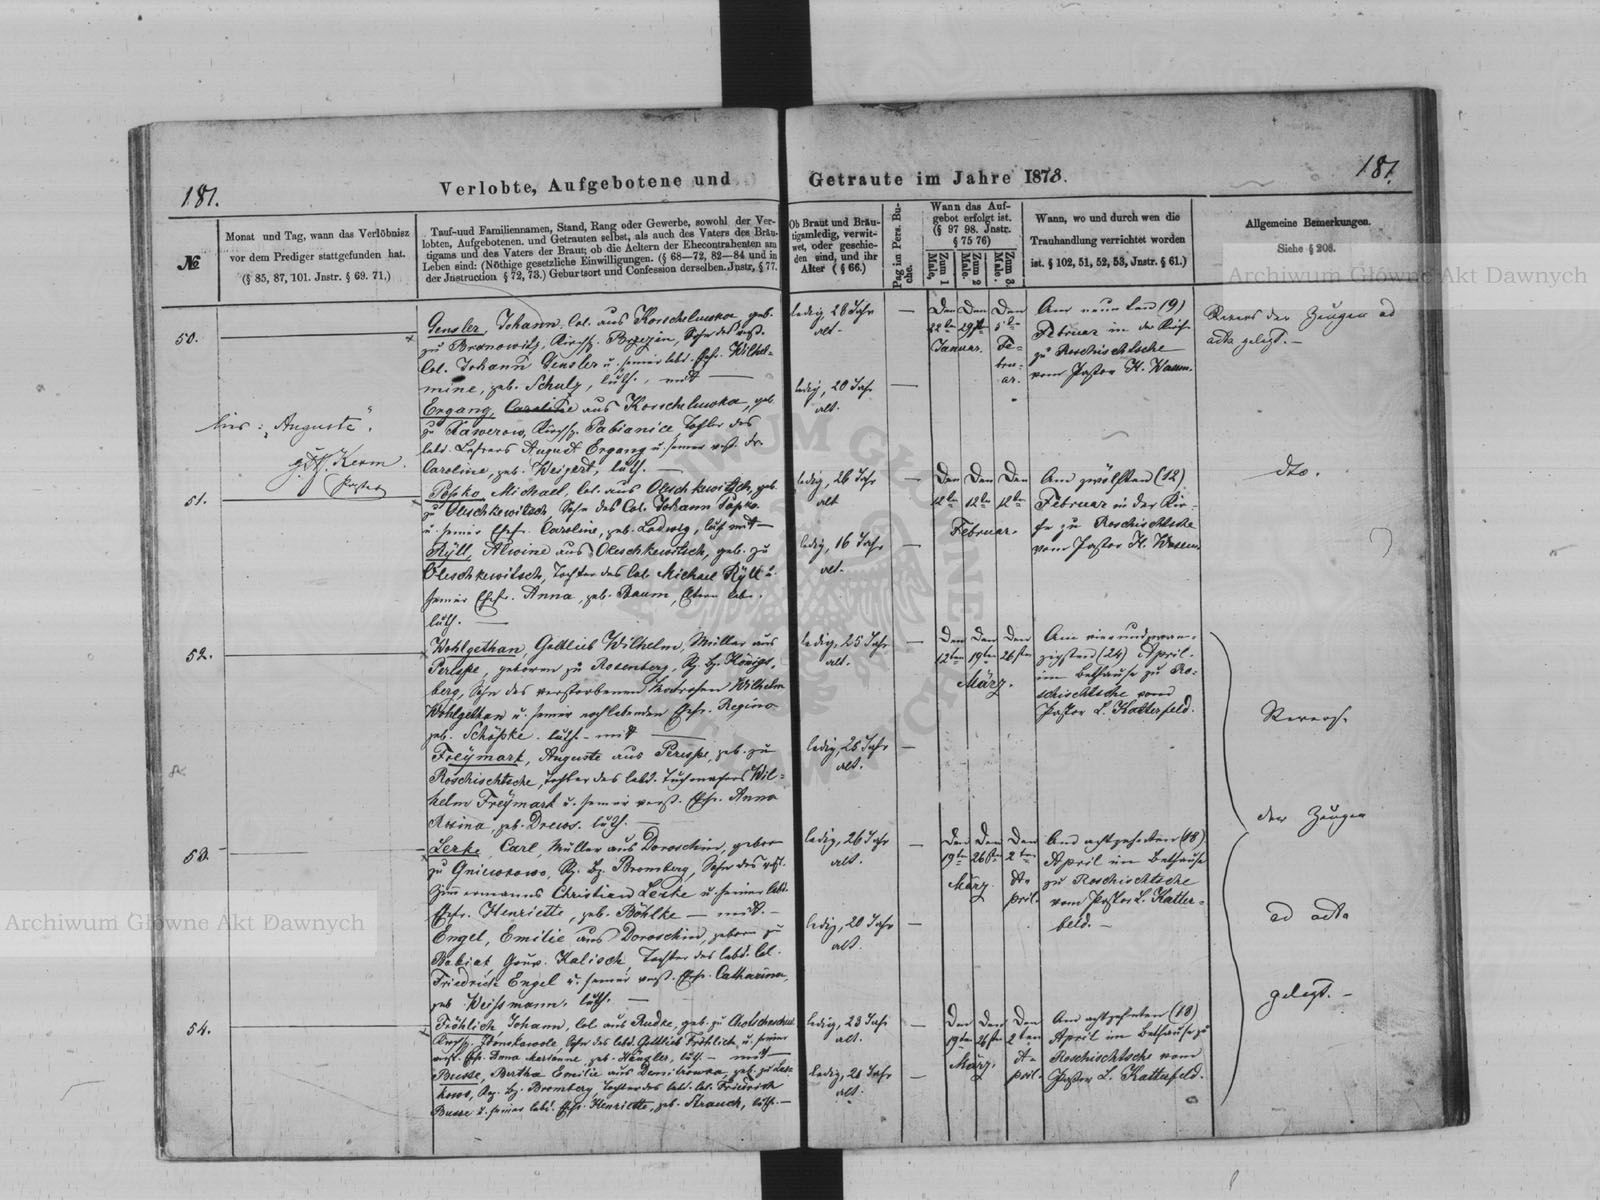 181.
Verlobte, Aufgebotene und Getraute im Jahre 1873.
181.
№
Monat und Tag, wann das Verlöbnisz
vor dem Prediger stattgefunden hat.
(§ 85, 87, 101. Jnstr. § 69. 71.)
Tauf-und Familiennamen, Stand, Rang oder Gewerbe, sowohl der Ver-
lobten, Aufgebotenen. und Getrauten selbst, als auch des Vaters des Bräu-
tigams und des Vaters der Braut; ob die Aeltern der Ehecontrahenten am
Leben sind: (Nöthige gesetzliche Einwilligungen. (§ 68—72, 82—84 und in
der Jnstruction § 72, 73.) Geburtsort und Confession derselben. Jnstr, § 77.
Ob Braut und Bräu-
tigam ledig, verwit-
wet, oder geschie-
den sind, und ihr
Alter (§ 66.)
Pag im Pers. Bu-
che.
Wann das Auf-
gebot erfolgt ist.
(§ 97 98. Jnstr.
§ 75 76)
Zum 1 Male,
Zum 2 Male.
Zum 3. Male.
Wann, wo und durch wen die
Trauhandlung verrichtet worden
ist. § 102, 51, 52, 53, Jnstr. § 61.)
Allgemeine Bemerkungen.
Siehe § 208.
50.
Gensler, Johann, Col. aus Korschelewka, geb.
zu Bronowitz, Kirchsp. Sohn des verst.
Col. Johann Gensler u. seiner lebd. Ehefr. Wilhel-
mine, geb. Schulz, luth., mit —
Ergang, Caroline aus Korschelewka, geb.
zu Kawerow, Kirchsp. Pabianice, Tochter des
lebd. Lehrers August Ergang u. seiner verst. Fr.
Caroline, geb. Weigert, luth. —
ledig, 28 Jahr
alt.
ledig, 20 Jahr
alt.
Den 22ten
Den 29ten
Januar.
Den 5ten
Fe-
bru-
ar.
Am neunten (9)
Februar in der Kirche
zu Roschischtsche
vom Pastor H. Wasem.
Revers der Zeugen ad
acta gelegt. —
hier: „Auguste".
Kerm.
Pastor
51.
Popko, Michael, Col. aus Oleschkewitsch, geb.
zu Oleschkewitsch, Sohn des Col. Johann Popko
u. seiner Ehefr. Caroline, geb. Ladwig, luth. mit —
Rÿll, Alwine aus Oleschkewitsch, geb. zu
Oleschkewitsch, Tochter des Col. Michael Rÿll u.
seiner Ehefr. Anna, geb. Baum, Eltern leben.
luth. —
ledig, 26 Jahr
alt
ledig, 16 Jahr
alt.
Den Den Den
12ten 12ten 12ten
Februar.
Am zwölften (12)
Februar in der Kir-
che zu Roschischtsche
vom Pastor H. Wasem.
dto.
52.
Wohlgethan, Gottlieb Wilhelm, Müller aus
Perespe, geboren zu Rosenberg, Rg. Bz. Königs-
berg, Sohn des verstorbenen Matrosen Wilhelm
Wohlgethan u. seiner nochlebenden Ehefr. Regina
geb. Schöpke. luth. — mit —
Freÿmark, Auguste aus Perespe, geb. zu
Roschischtsche, Tochter des lebd. Tuchmachers Wil-
helm Freÿmark u. seiner verst. Ehefr. Anna
Rosina, geb. Drews. luth. —
ledig, 25 Jahr
alt.
ledig, 25 Jahr
alt.
Den Den Den
12ten 19ten 26sten
März.
Am vierundzwan-
zigsten (24) April.
im Bethause zu Ro-
schischtsche vom
Pastor L. Katterfeld.
Revers.
der Zeugen
ad acta
gelegt. —
53.
Lerke, Carl, Müller aus Doroschin, geboren
zu Gniewkowo, Rg. Bz. Bromberg, Sohn des verst.
Zimmermanns Christian Lerke u. seiner lebd.
Ehefr. Henriette, geb. Böhlke — mit. —
Engel, Emilie aus Doroschin, geboren zu
Babiak Gouv. Kalisch Tochter des lebd. Col.
Friedrich Engel u. seiner verst. Ehefr. Catharina,
geb. Weissmann. luth. —
ledig, 26 Jahr
alt.
ledig, 20 Jahr
alt.
Den Den Den
19ten 26sten 2ten
März. A-
pril.
Am achtzehnten (18)
April im Bethause
zu Roschischtsche
vom Pastor L. Katter-
feld. —
54.
Fröhlich, Johann, Col. aus Rudke, geb. zu
Kirchsp. Sohn des lebd. Gottlieb Fröhlich u. seiner
verst. Ehefr. Anna Marianne, geb. Hänzler, luth. — mit —
Busse, Bertha Emilie aus geb. zu
Reg. Bz. Bromberg, Tochter des lebd. Col. Friedrich
Busse u. seiner lebd. Ehefr. Henriette, geb. Strauch, luth. —
ledig, 23 Jahr
alt.
ledig, 21 Jahr
alt.
Den Den Den
19ten 26sten 2ten
März. A-
pril.
Am achtzehnten (18)
April im Bethause zu
Roschischtsche vom
Pastor L. Katterfeld.
Archiwum Główne Akt Dawnych
Archiwum Główne Akt Dawnych